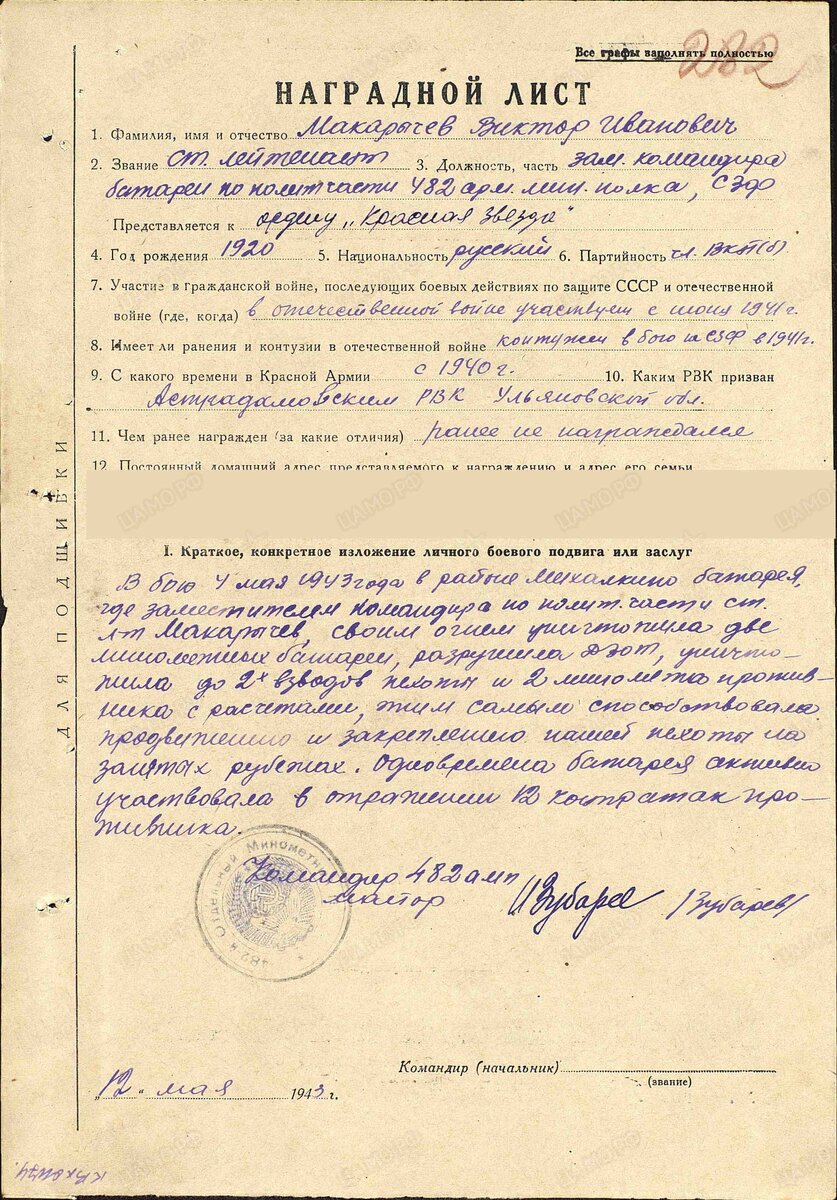 Все графы заполнять полностью
282
НАГРАДНОЙ ЛИСТ
1. Фамилия, имя и отчество Макарычев Виктор Иванович
2. Звание ст. лейтенант 3. Должность, часть зам. командира
батареи по политчасти 482 арм. мин. полка, СЗФ
Представляется к ордену „Красная Звезда"
4. Год рождения 1920 5. Национальность русский 6. Партийность чл. ВКП(б)
7. Участие в гражданской войне, последующих боевых действиях по защите СССР и отечественной
войне (где, когда) в отечественной войне участвует с июня 1941 г.
8. Имеет ли ранения и контузии в отечественной войне контужен в бою на СЗФ в 1941г.
9. С какого времени в Красной Армии с 1940 г. 10. Каким РВК призван
Астрадамовским РВК Ульяновской обл.
11. Чем ранее награжден (за какие отличия) ранее не награждался
12. Постоянный домашний адрес представляемого к награждению и адрес его семьи
I. Краткое, конкретное изложение личного боевого подвига или заслуг
В бою 4 мая 1943 года в районе Михалкино батарея,
где заместителем командира по полит.части ст.
л-т Макарычев, своим огнем уничтожила две
минометных батареи, разрушила ДЗОТ, уничто-
жила до 2х взводов пехоты и 2 миномета против-
ника с расчетами, тем самым способствовала
продвижению и закреплению нашей пехоты на
занятых рубежах. Одновремена батарея активно
участвовала в отражении 12 контратак про-
тивника.
Командир 482 амп
майор Зубарев /Зубарев/
482-й Отдельный Минометный
Командир (начальник)
(звание)
„12" мая 1943 г.
ДЛЯ ПОДШИВКИ
ЦАМО РФ